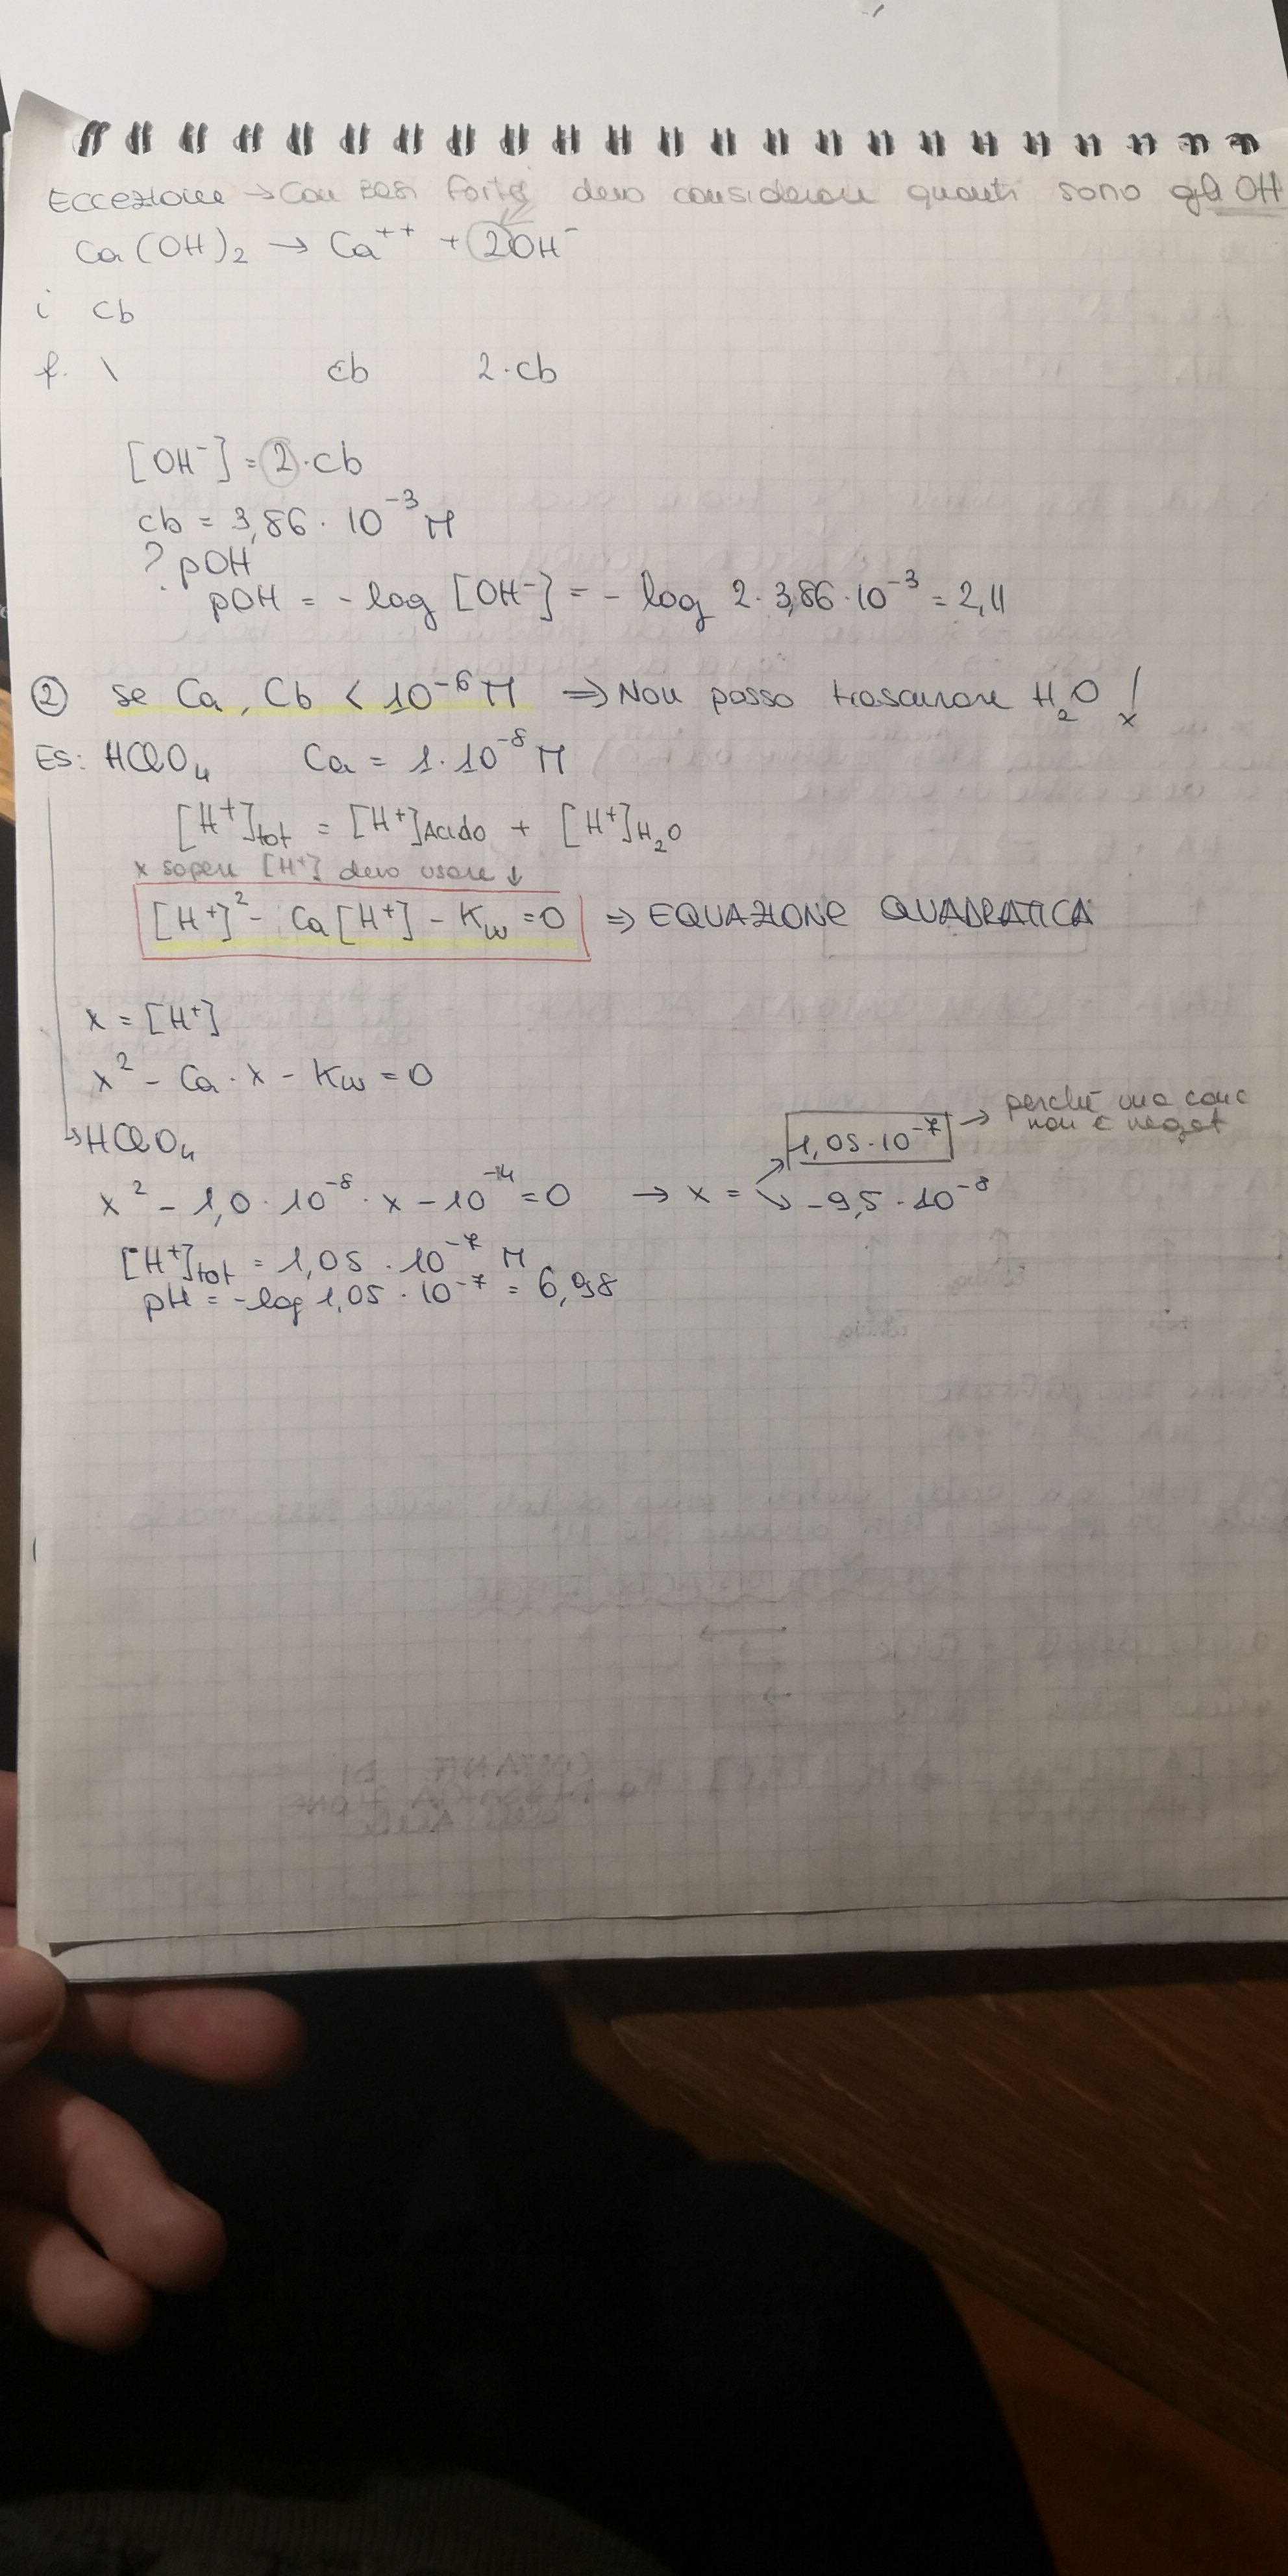 Eccezione → Con basi forti devo considerare quanti sono gli OH
Ca(OH)₂ → Ca⁺⁺ + 2OH⁻
i cb
f. \ cb 2·cb
[OH⁻] = 2·cb
cb = 3,86 · 10⁻³ M
? pOH
pOH = - log [OH⁻] = - log 2·3,86·10⁻³ = 2,11
② se Ca, Cb < 10⁻⁶ M ⇒ Non posso trascurare H₂O !
ES: HClO₄ Ca = 1·10⁻⁸ M
[H⁺]tot = [H⁺]Acido + [H⁺]H₂O
x sapere [H⁺] devo usare ↓
[H⁺]² - Ca[H⁺] - Kw = 0 ⇒ EQUAZIONE QUADRATICA
x = [H⁺]
x² - Ca · x - Kw = 0
↳ HClO₄
1,05·10⁻⁷ → perché una conc
non è negat
x² - 1,0·10⁻⁸ · x - 10⁻¹⁴ = 0 → x = -9,5·10⁻⁸
[H⁺]tot = 1,05 · 10⁻⁷ M
pH = -log 1,05 · 10⁻⁷ = 6,98